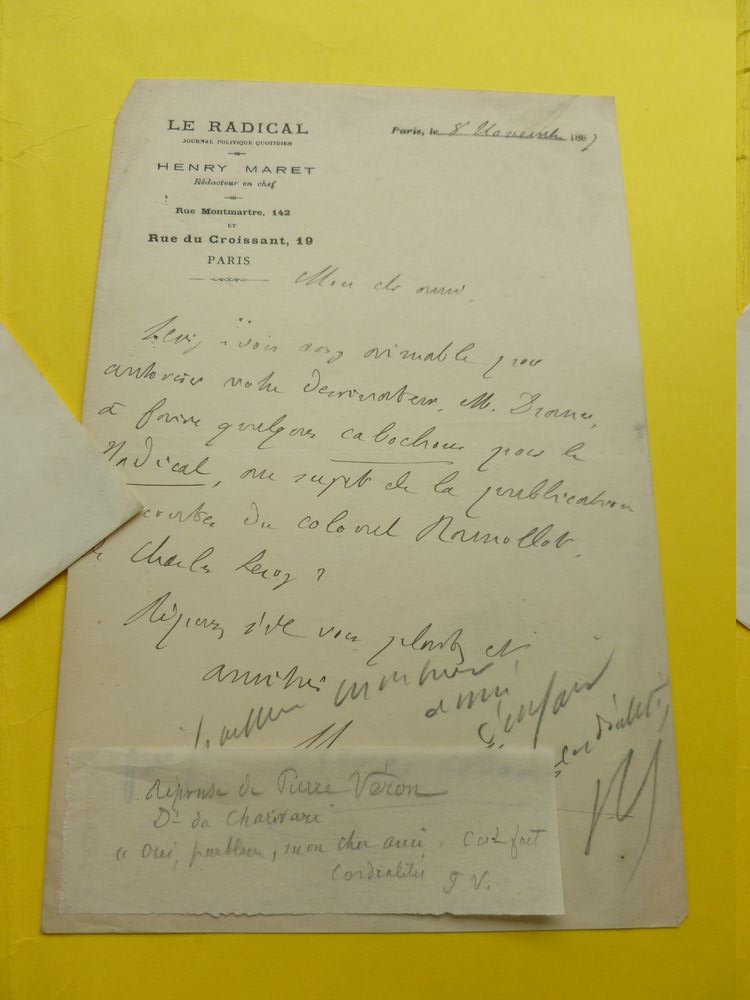 LE RADICAL
JOURNAL POLITIQUE QUOTIDIEN
HENRY MARET
Rédacteur en chef
Rue Montmartre, 142
ET
Rue du Croissant, 19
PARIS
Paris, le 8 Novembre 1887
Mon cher ami,
Seriez-vous assez aimable pour
autoriser votre dessinateur, M. Draner,
à faire quelques cabochons pour le
Radical, au sujet de la publication
contes du colonel Ramollot,
de Charles Leroy ?
Réponse s'il vous plaît, et
amitiés
mon cher
ami
c'est fait
cordialités
PV
Réponse de Pierre Véron
Dr du Charivari
« Oui, parbleu, mon cher ami, c'est fait
Cordialités P. V.